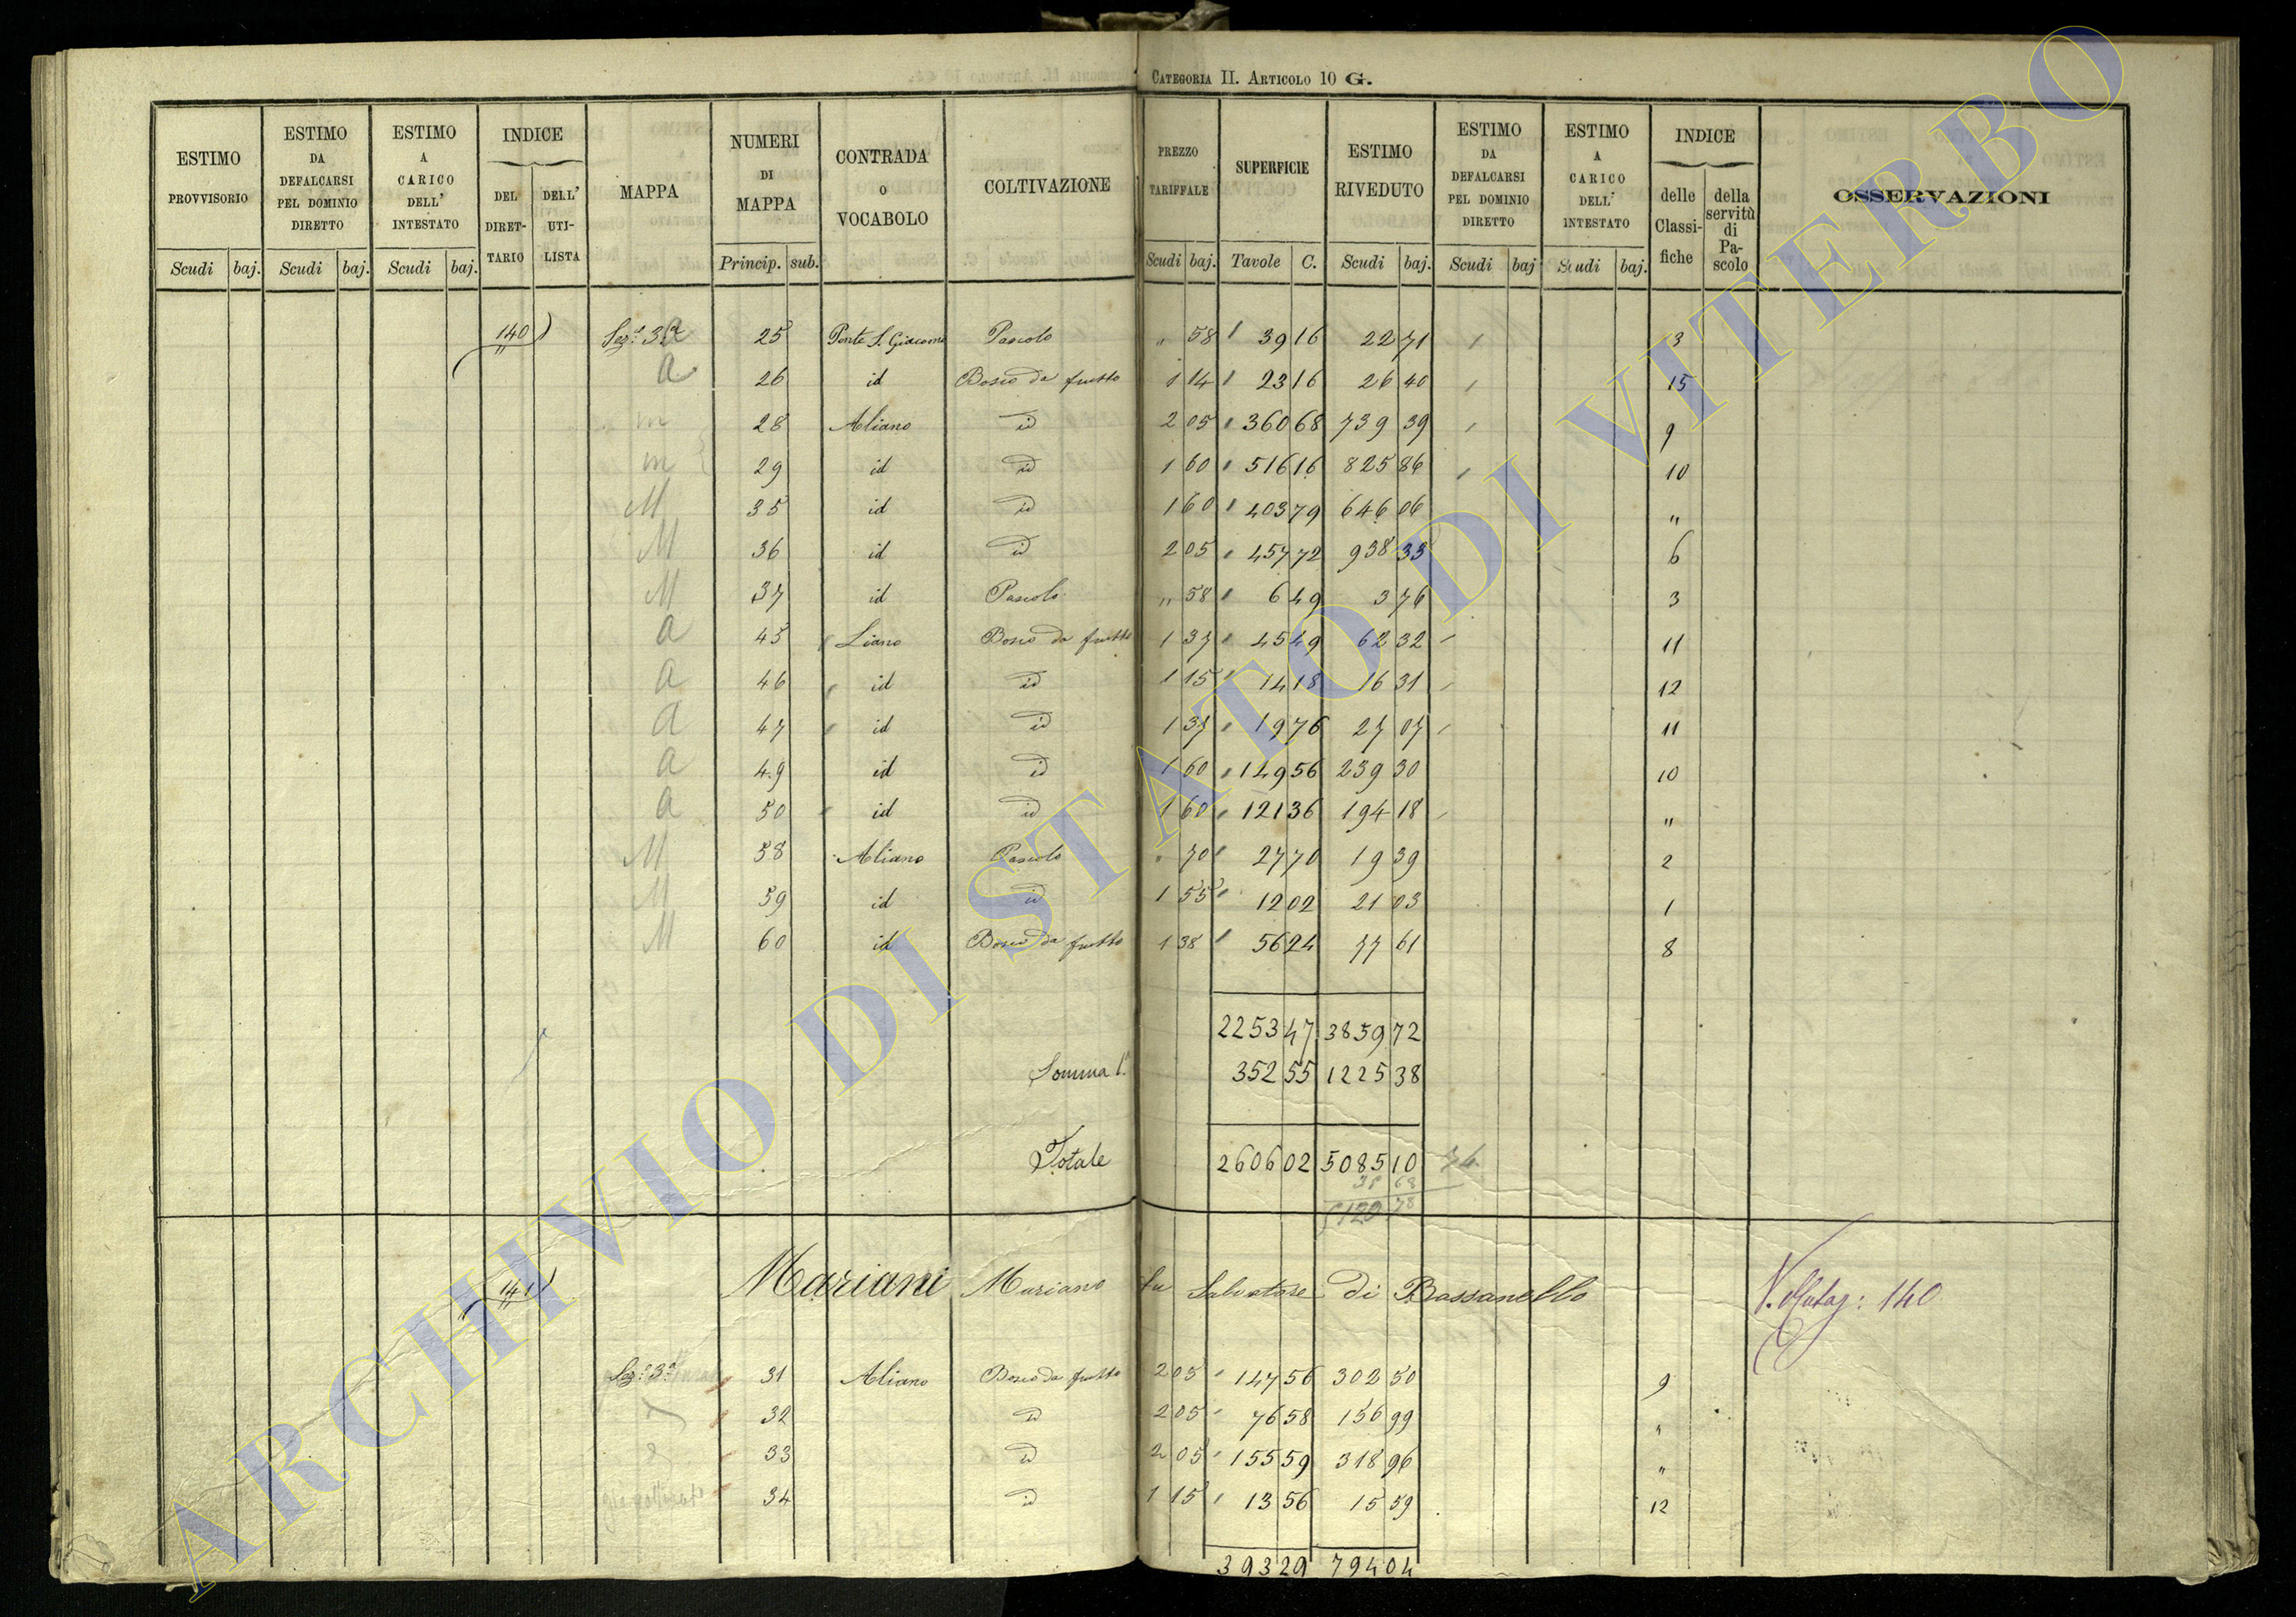 CATEGORIA II. ARTICOLO 10 G.
ESTIMO PROVVISORIO Scudi baj.
ESTIMO DA DEFALCARSI PEL DOMINIO DIRETTO Scudi baj.
ESTIMO A CARICO DELL' INTESTATO Scudi baj.
INDICE DEL DIRETTARIO DELL' UTILISTA
MAPPA
NUMERI DI MAPPA Princip. sub.
CONTRADA O VOCABOLO
COLTIVAZIONE
PREZZO TARIFFALE Scudi baj.
SUPERFICIE Tavole C.
ESTIMO RIVEDUTO Scudi baj.
ESTIMO DA DEFALCARSI PEL DOMINIO DIRETTO Scudi baj
ESTIMO A CARICO DELL' INTESTATO Scudi baj.
INDICE delle Classifiche della servitù di Pascolo
OSSERVAZIONI
140 Sez.e 3a a 25 Ponte S. Giacomo Pascolo " 58 39 16 22 71 3
a 26 id Bosco da frutto 1 14 23 16 26 40 15
m 28 Aliano id 2 05 360 68 739 39 9
m 29 id id 1 60 516 16 825 86 10
M 35 id id 1 60 403 79 646 06 "
M 36 id id 2 05 457 72 938 33 6
M 37 id Pascolo " 58 6 49 3 76 3
a 45 Liano Bosco da frutto 1 37 45 49 62 32 11
a 46 id id 1 15 14 18 16 31 12
a 47 id id 1 37 19 76 27 07 11
a 49 id id 1 60 149 56 239 30 10
a 50 id id 1 60 121 36 194 18 "
M 58 Aliano Pascolo " 70 27 70 19 39 2
M 59 id id 1 55 12 02 21 03 1
M 60 id Bosco da frutto 1 38 56 24 77 61 8
2253 47 3859 72
Somma 1a 352 55 1225 38
Totale 2606 02 5085 10 74
68
5120 78
141 Mariani Mariano fu Salvatore di Bassanello V. Mutaz: 140
Sez.e 3a 31 Aliano Bosco da frutto 2 05 147 56 302 50 9
32 id 2 05 76 58 156 99 "
33 id 2 05 155 59 318 96 "
34 id 1 15 13 56 15 59 12
393 29 794 04
ARCHIVIO DI STATO DI VITERBO